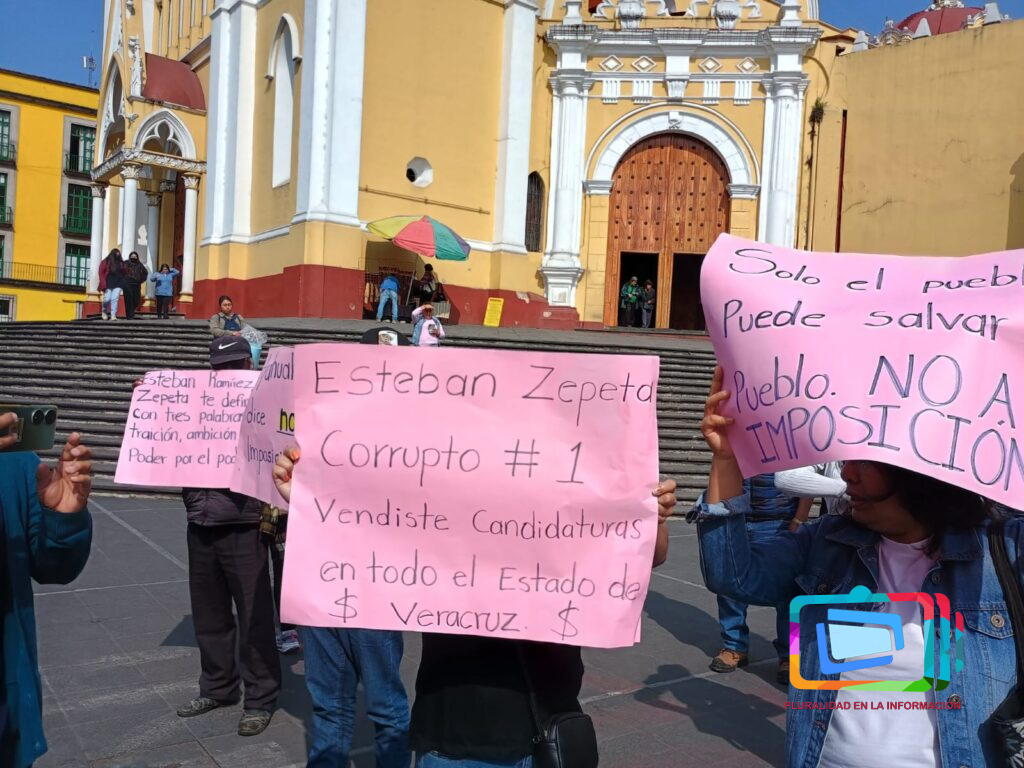 Esteban Ramírez
Zepeta te defi
con tres palabra
traición, ambición
Poder por el po
anual
dice no
Imposic
Esteban Zepeta
Corrupto # 1
Vendiste Candidaturas
en todo el Estado de
$ Veracruz. $
Solo el puebl
Puede salvar
Pueblo. NO A
IMPOSICIÓN
PLURALIDAD EN LA INFORMACIÓN